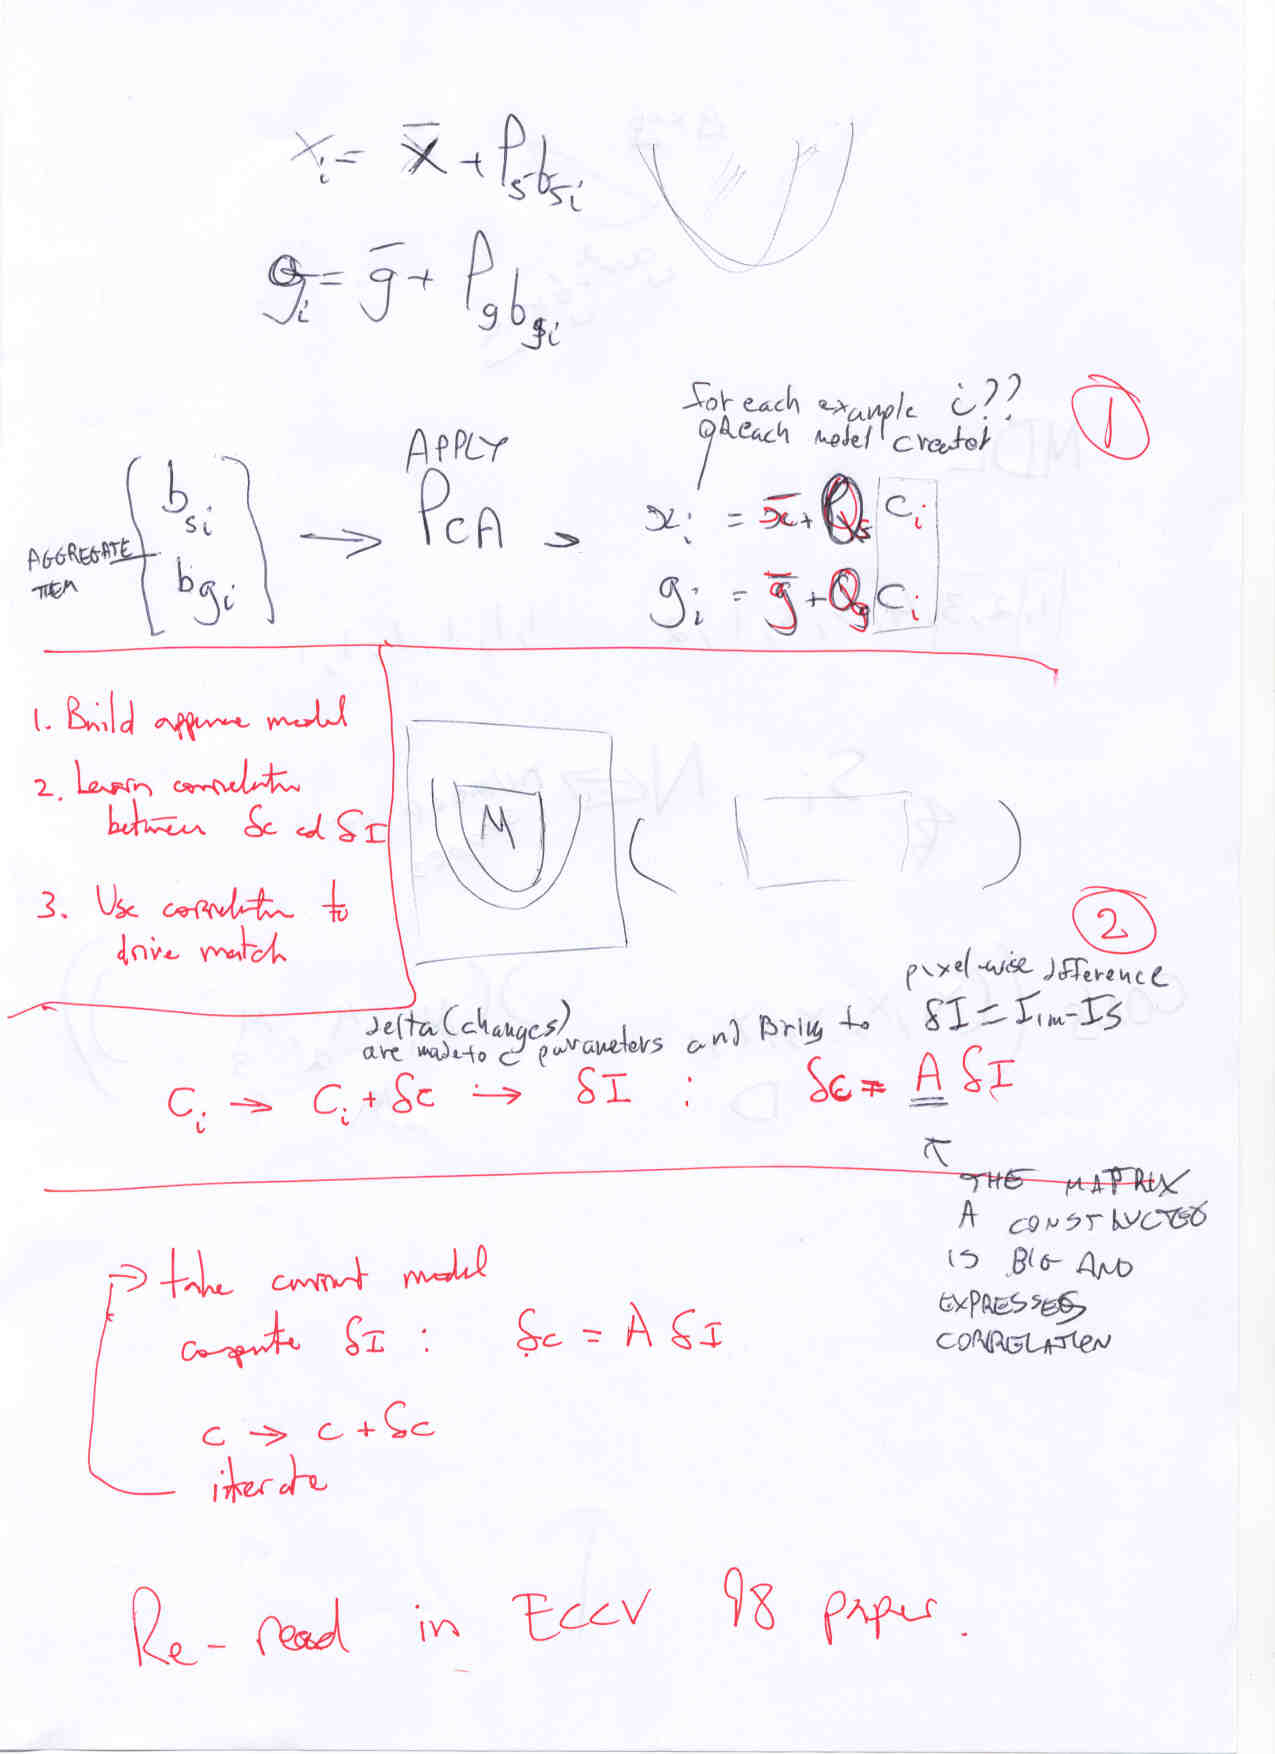 xᵢ = x̄ + Pₛbₛᵢ
gᵢ = ḡ + P_g b_gᵢ
for each example i??
OR each model created
1
APPLY
PCA
AGGREGATE
THEM
bₛᵢ
b_gᵢ
xᵢ = x̄ + Qₛ cᵢ
gᵢ = ḡ + Q_g cᵢ
1. Build appearance model
2. Learn correlation
between δc and δI
3. Use correlation to
drive match
M
2
pixel-wise difference
δI = I_im - Is
delta (changes)
are made to c parameters and Bring to
cᵢ → cᵢ + δc → δI : δc = A δI
THE MATRIX
A CONSTRUCTED
IS BIG AND
EXPRESSES
CORRELATION
take current model
compute δI : δc = A δI
c → c + δc
iterate
Re-read in ECCV 98 paper.